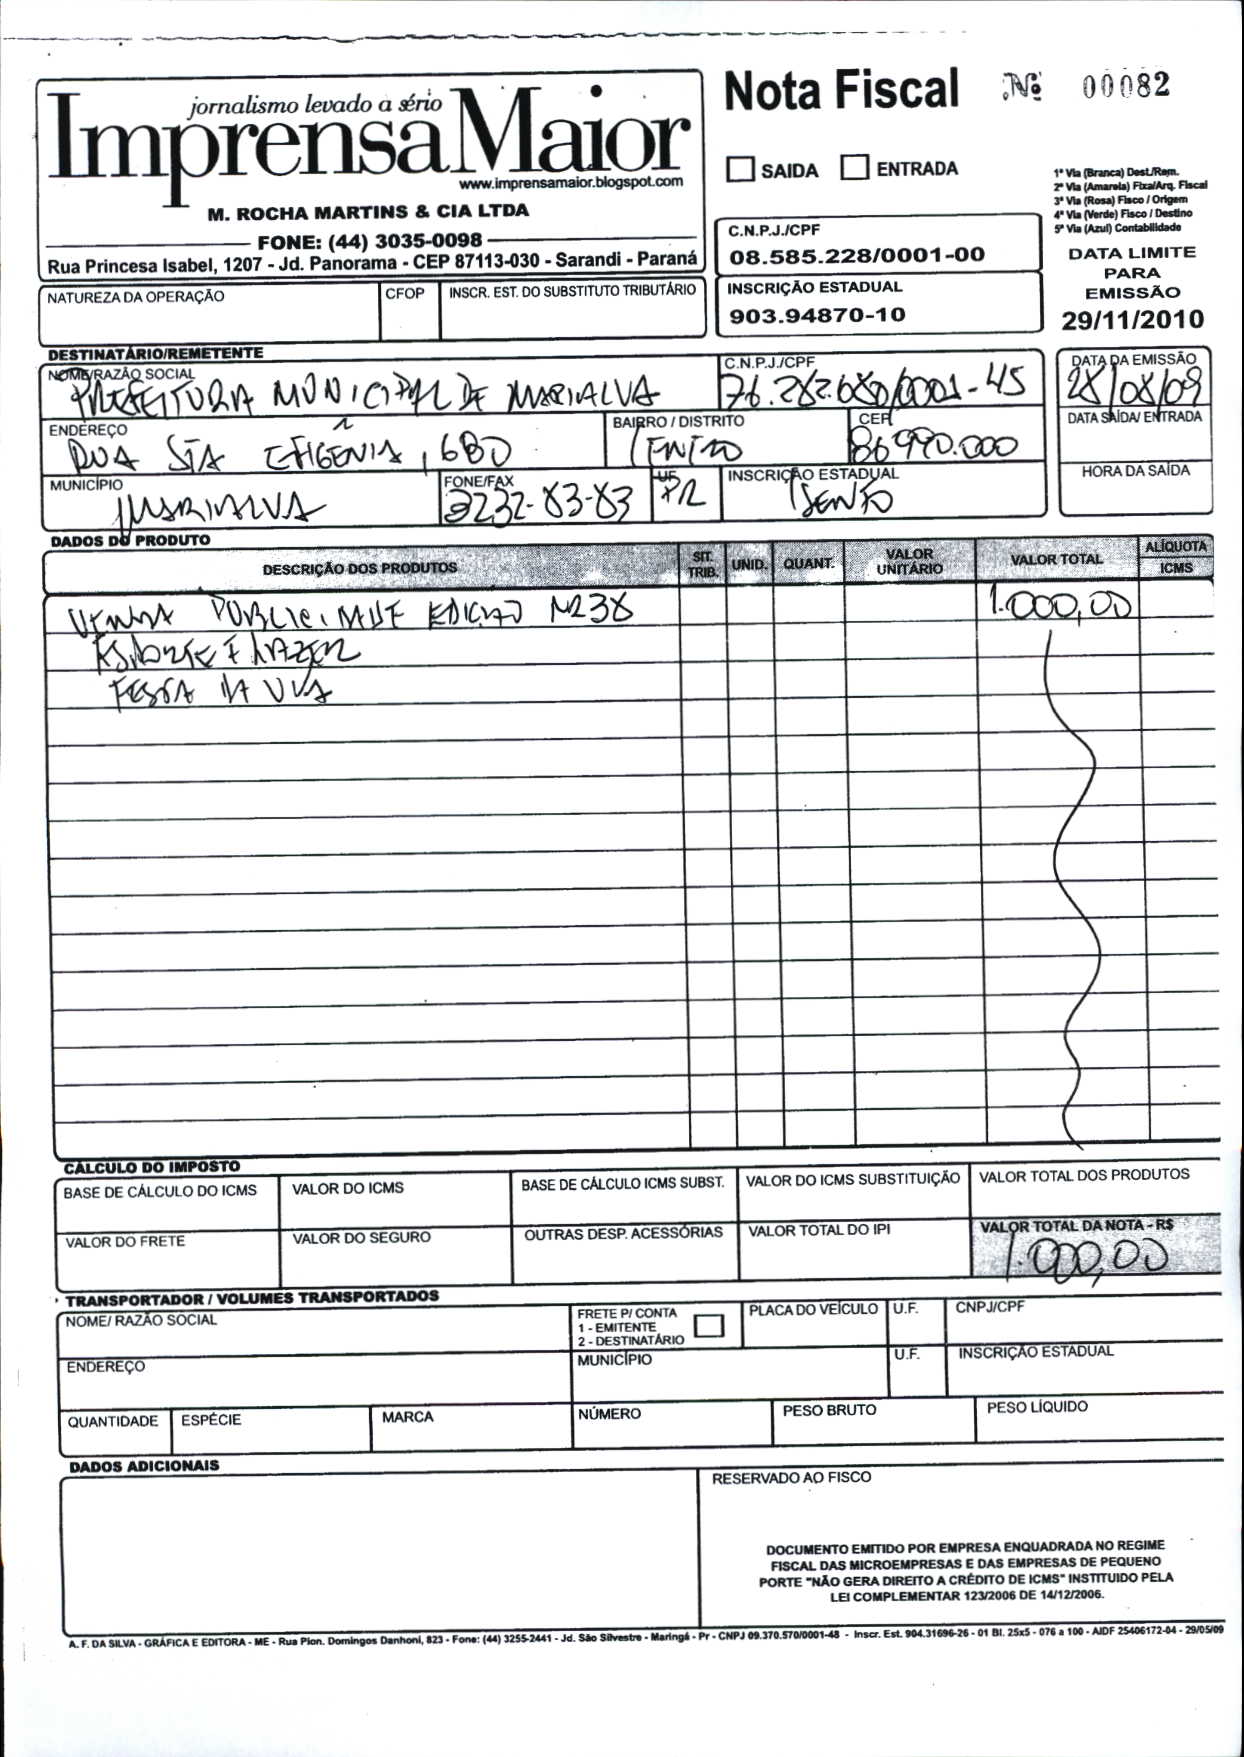 jornalismo levado a sério
Imprensa Maior
www.imprensamaior.blogspot.com
M. ROCHA MARTINS & CIA LTDA
FONE: (44) 3035-0098
Rua Princesa Isabel, 1207 - Jd. Panorama - CEP 87113-030 - Sarandi - Paraná
Nota Fiscal Nº 00082
SAIDA ENTRADA
1ª Via (Branca) Dest./Rem.
2ª Via (Amarela) Fixa/Arq. Fiscal
3ª Via (Rosa) Fisco / Origem
4ª Via (Verde) Fisco / Destino
5ª Via (Azul) Contabilidade
C.N.P.J./CPF
08.585.228/0001-00
INSCRIÇÃO ESTADUAL
903.94870-10
DATA LIMITE
PARA
EMISSÃO
29/11/2010
NATUREZA DA OPERAÇÃO CFOP INSCR. EST. DO SUBSTITUTO TRIBUTÁRIO
DESTINATÁRIO/REMETENTE
NOME/RAZÃO SOCIAL C.N.P.J./CPF DATA DA EMISSÃO
PREFEITURA MUNICIPAL DE MARIALVA 76.282.680/0001-45 28/08/09
ENDEREÇO BAIRRO / DISTRITO CEP DATA SAÍDA/ ENTRADA
RUA STA EFIGÊNIA, 680 CENTRO 86990.000
MUNICÍPIO FONE/FAX UF INSCRIÇÃO ESTADUAL HORA DA SAÍDA
MARIALVA 3232-83-83 PR ISENTO
DADOS DO PRODUTO
DESCRIÇÃO DOS PRODUTOS SIT. TRIB. UNID. QUANT. VALOR UNITÁRIO VALOR TOTAL ALÍQUOTA ICMS
VENDA PUBLICIDADE EDIÇÃO NR38 1.000,00
ESPORTE E LAZER
FESTA DA UVA
CÁLCULO DO IMPOSTO
BASE DE CÁLCULO DO ICMS VALOR DO ICMS BASE DE CÁLCULO ICMS SUBST. VALOR DO ICMS SUBSTITUIÇÃO VALOR TOTAL DOS PRODUTOS
VALOR DO FRETE VALOR DO SEGURO OUTRAS DESP. ACESSÓRIAS VALOR TOTAL DO IPI VALOR TOTAL DA NOTA - R$
1.000,00
TRANSPORTADOR / VOLUMES TRANSPORTADOS
NOME/ RAZÃO SOCIAL FRETE P/ CONTA
1 - EMITENTE
2 - DESTINATÁRIO
PLACA DO VEÍCULO U.F. CNPJ/CPF
ENDEREÇO MUNICÍPIO U.F. INSCRIÇÃO ESTADUAL
QUANTIDADE ESPÉCIE MARCA NÚMERO PESO BRUTO PESO LÍQUIDO
DADOS ADICIONAIS
RESERVADO AO FISCO
DOCUMENTO EMITIDO POR EMPRESA ENQUADRADA NO REGIME
FISCAL DAS MICROEMPRESAS E DAS EMPRESAS DE PEQUENO
PORTE "NÃO GERA DIREITO A CRÉDITO DE ICMS" INSTITUIDO PELA
LEI COMPLEMENTAR 123/2006 DE 14/12/2006.
A. F. DA SILVA - GRÁFICA E EDITORA - ME - Rua Pion. Domingos Danhoni, 823 - Fone: (44) 3255-2441 - Jd. São Silvestre - Maringá - Pr - CNPJ 09.370.570/0001-48 - Inscr. Est. 904.31696-26 - 01 Bl. 25x5 - 076 a 100 - AIDF 25406172-04 - 29/05/09